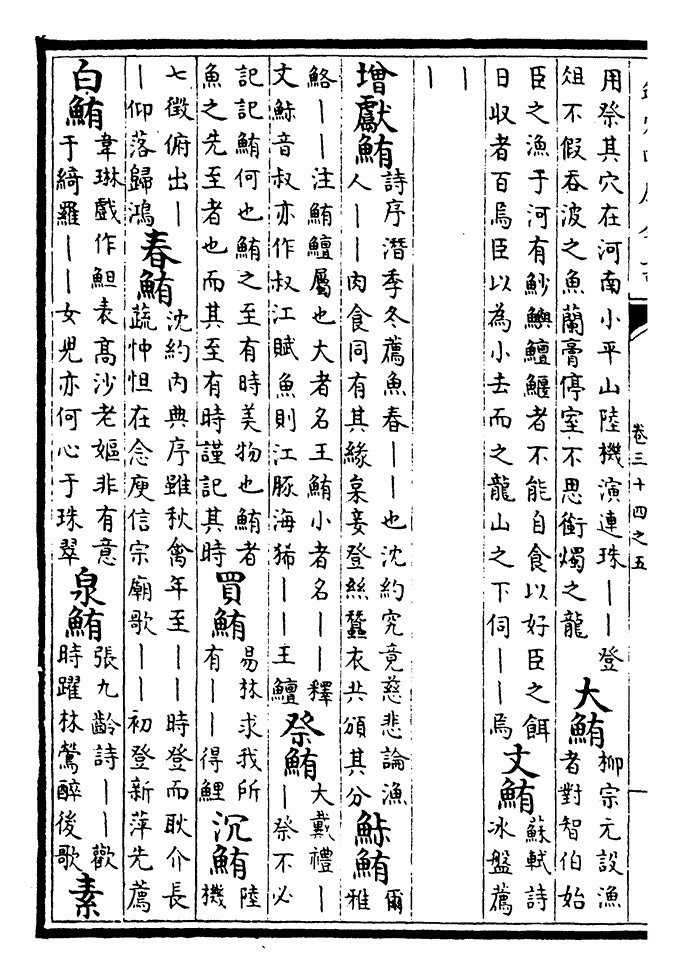 用祭其穴在河南小平山陸機演連珠——登
俎不假吞波之魚蘭膏停室不思銜燭之龍
大鮪
柳宗元設漁
者對智伯始
臣之漁于河有魦鱮鱣鰋者不能自食以好臣之餌
日収者百焉臣以為小去而之龍山之下伺——焉
丈鮪
蘇軾詩
冰盤薦
—
—
增獻鮪
詩序潛季冬薦魚春——也沈約究竟慈悲論漁
人——肉食同有其緣枲妾登絲蠶衣共頒其分
鮛鮪
爾
雅
鮥——注鮪鱣屬也大者名王鮪小者名——釋
文鮛音叔亦作叔江賦魚則江豚海狶——王鱣
祭鮪
大戴禮—
—祭不必
記記鮪何也鮪之至有時美物也鮪者
魚之先至者也而其至有時謹記其時
買鮪
易林求我所
有——得鯉
沉鮪
陸
機
七徵俯出—
—仰落歸鴻
春鮪
沈約內典序雖秋禽年至——時登而耿介長
蔬忡怛在念庾信宗廟歌——初登新萍先薦
白鮪
韋琳戲作䱇表高沙老嫗非有意
于綺羅——女兕亦何心于珠翠
泉鮪
張九齡詩——歡
時躍林鶯醉後歌
素
卷三十四之五